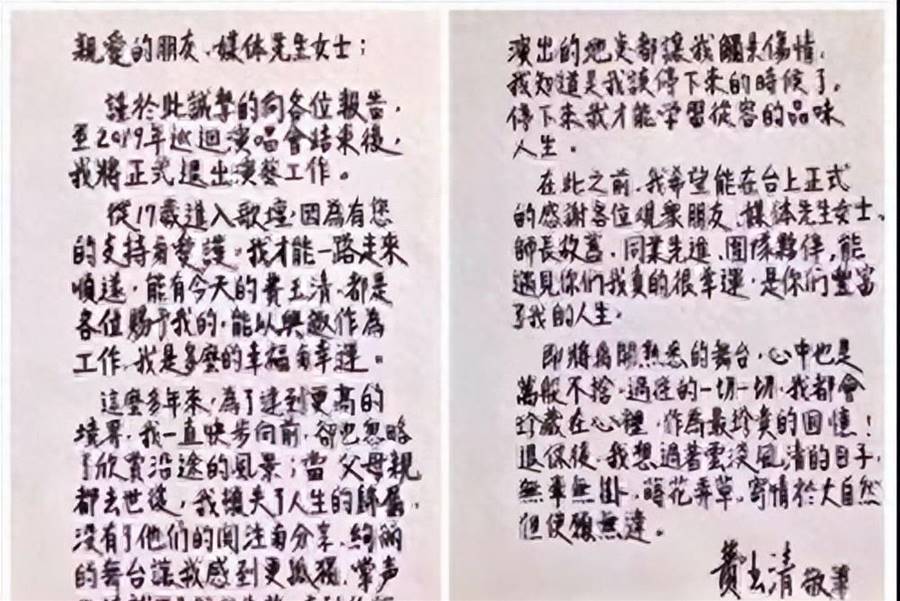 親愛的朋友、媒体先生女士：
謹於此誠摯的向各位報告，
至2019年巡迴演唱會結束後，
我將正式退出演藝工作。
從17歲進入歌壇，因為有您
的支持与愛護，我才能一路走來
順遂，能有今天的費玉清，都是
各位賜于我的，能以興趣作為
工作，我是多麼的幸福与幸運。
這麼多年來，為了達到更高的
境界，我一直快步向前，卻也忽略
了欣賞沿途的風景；當父母親
都去世後，我頓失了人生的歸屬，
沒有了他們的関注与分享，絢麗
的舞台讓我感到更孤獨，掌声
演出的地点都讓我觸景傷情，
我知道是我該停下來的時候了。
停下來我才能学習從容的品味
人生。
在此之前，我希望能在台上正式
的感謝各位观衆朋友、媒体先生女士、
師長故舊、同業先進、團隊夥伴，能
遇見你們我真的很幸運，是你們豐富
了我的人生。
即將离開熟悉的舞台，心中也是
萬般不捨，過往的一切一切，我都會
珍藏在心裡，作為最珍貴的回憶！
退休後，我想過著雲淡風清的日子，
無牽無掛，蒔花弄草，寄情於大自然
但使願無違。
費玉清 敬筆